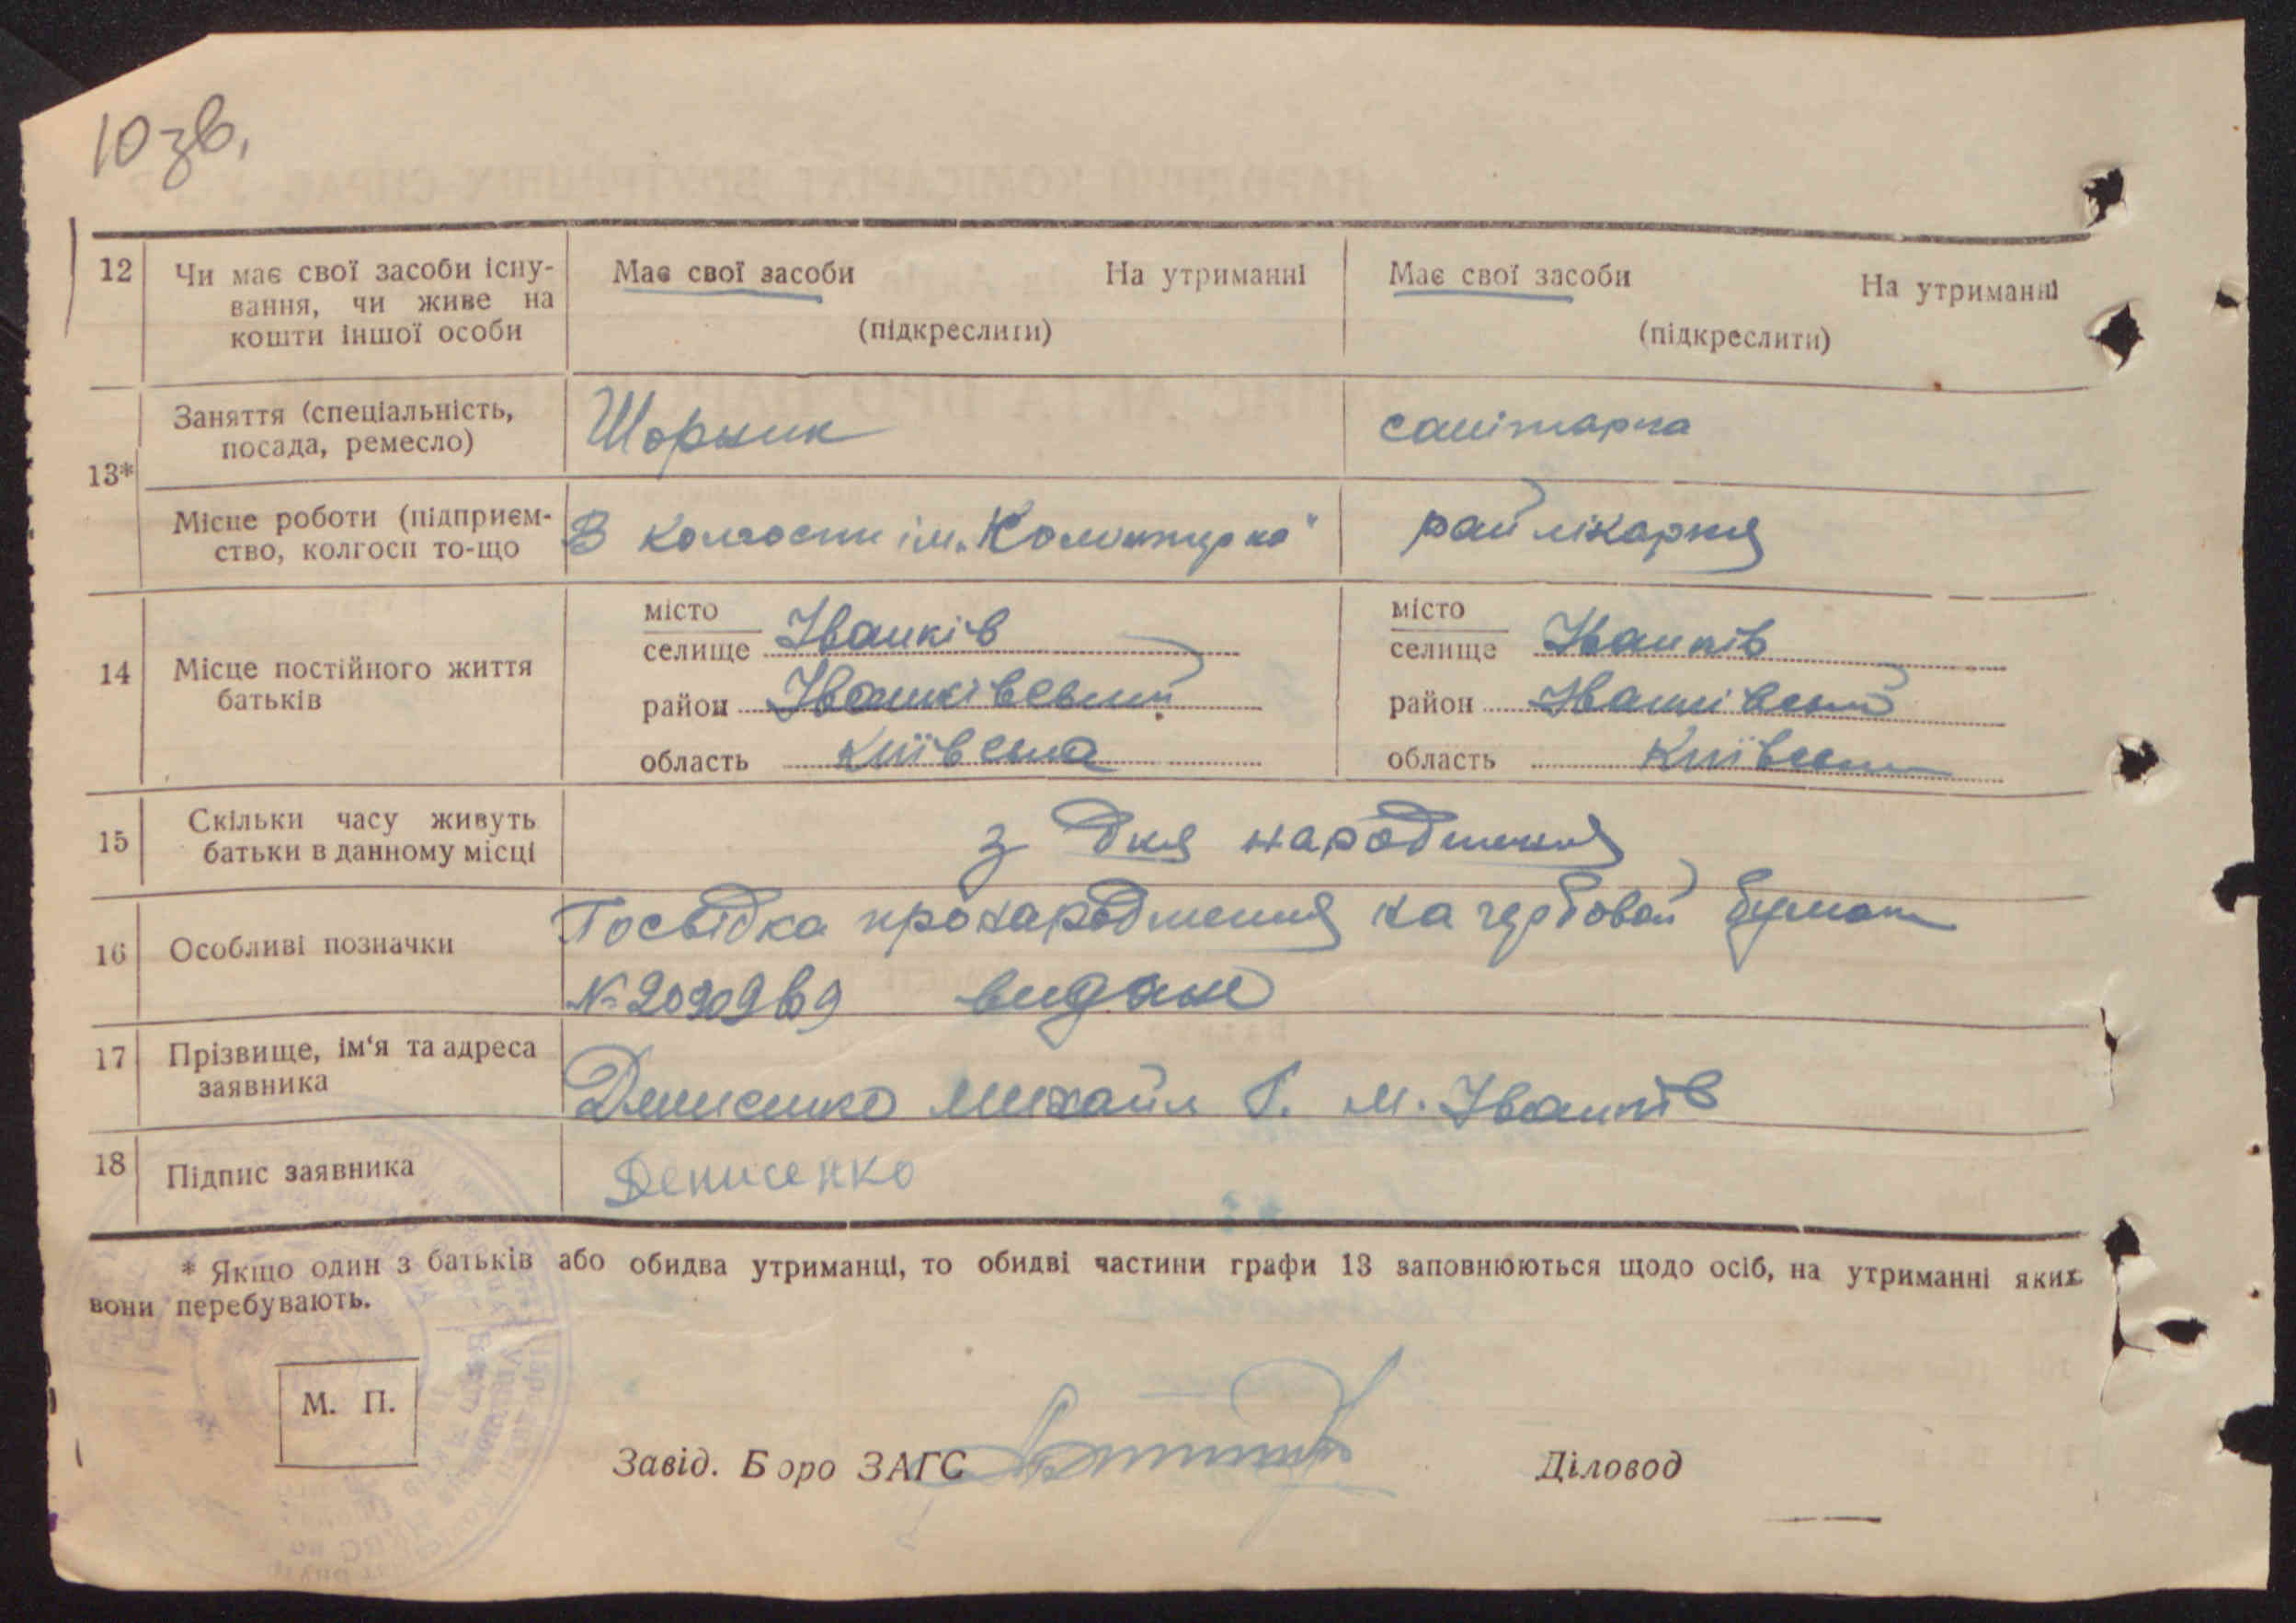 10 зв.
12 Чи має свої засоби існу- Має свої засоби На утриманні Має свої засоби На утриманні
вання, чи живе на
кошти іншої особи (підкреслити) (підкреслити)
Заняття (спеціальність, Шорник санітарка
посада, ремесло)
13*
Місце роботи (підприєм- В колгоспи ім. „Комінтерна" райлікарня
ство, колгосп то-що
місто місто
селище Іванків селище Іванків
14 Місце постійного життя
батьків
район Іванківський район Іванківський
область Київська область Київська
15 Скільки часу живуть з дня народження
батьки в данному місці
16 Особливі позначки Посвідка про народження на гербовой бумаги
№ видане
17 Прізвище, ім'я та адреса
заявника Денисенко Михайл Г. м. Іванків
18 Підпис заявника Денисенко
* Якщо один з батьків або обидва утриманці, то обидві частини графи 13 заповнюються щодо осіб, на утриманні яких
вони перебувають.
М. П.
Завід. Бюро ЗАГС Діловод